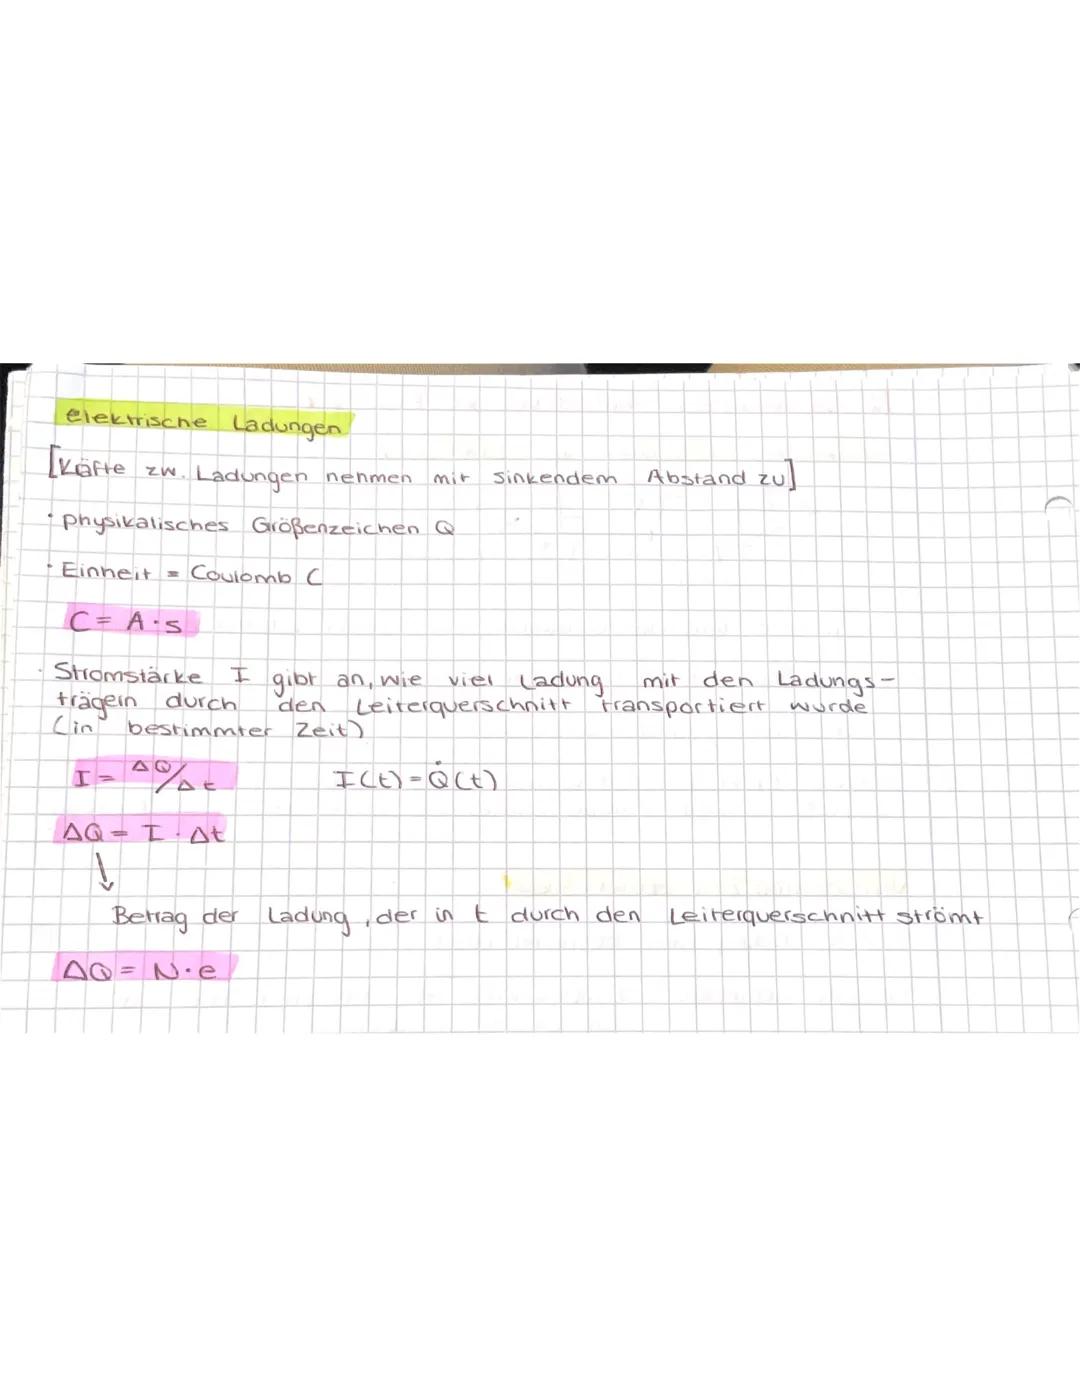 elektrische Ladungen
[Käfte zw. Ladungen nehmen mit sinkendem Abstand zu]
• physikalisches Größenzeichen Q
• Einheit = Coulomb C
C = A · s
· Stromstärke I gibt an, wie viel Ladung mit den Ladungs-
trägern durch den Leiterquerschnitt transportiert wurde
(in bestimmter Zeit)
I = ΔQ/Δt I(t) = Q̇(t)
ΔQ = I · Δt
↓
Betrag der Ladung, der in t durch den Leiterquerschnitt strömt
ΔQ = N · e